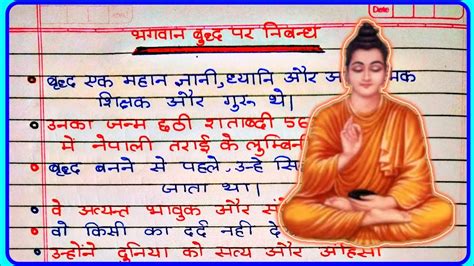 Date
भगवान बुद्ध पर निबन्ध
बुद्ध एक महान ज्ञानी, ध्यानि और
शिक्षक और गुरू थे।
उनका जन्म छठी शताब्दी
में नेपाली तराई के लुम्बिनी
बुद्ध बनने से पहले, उन्हे
जाता था।
वे अत्यन्त भावुक और
वो किसी का दर्द नही
उन्होंने दुनिया को सत्य और अहिंसा